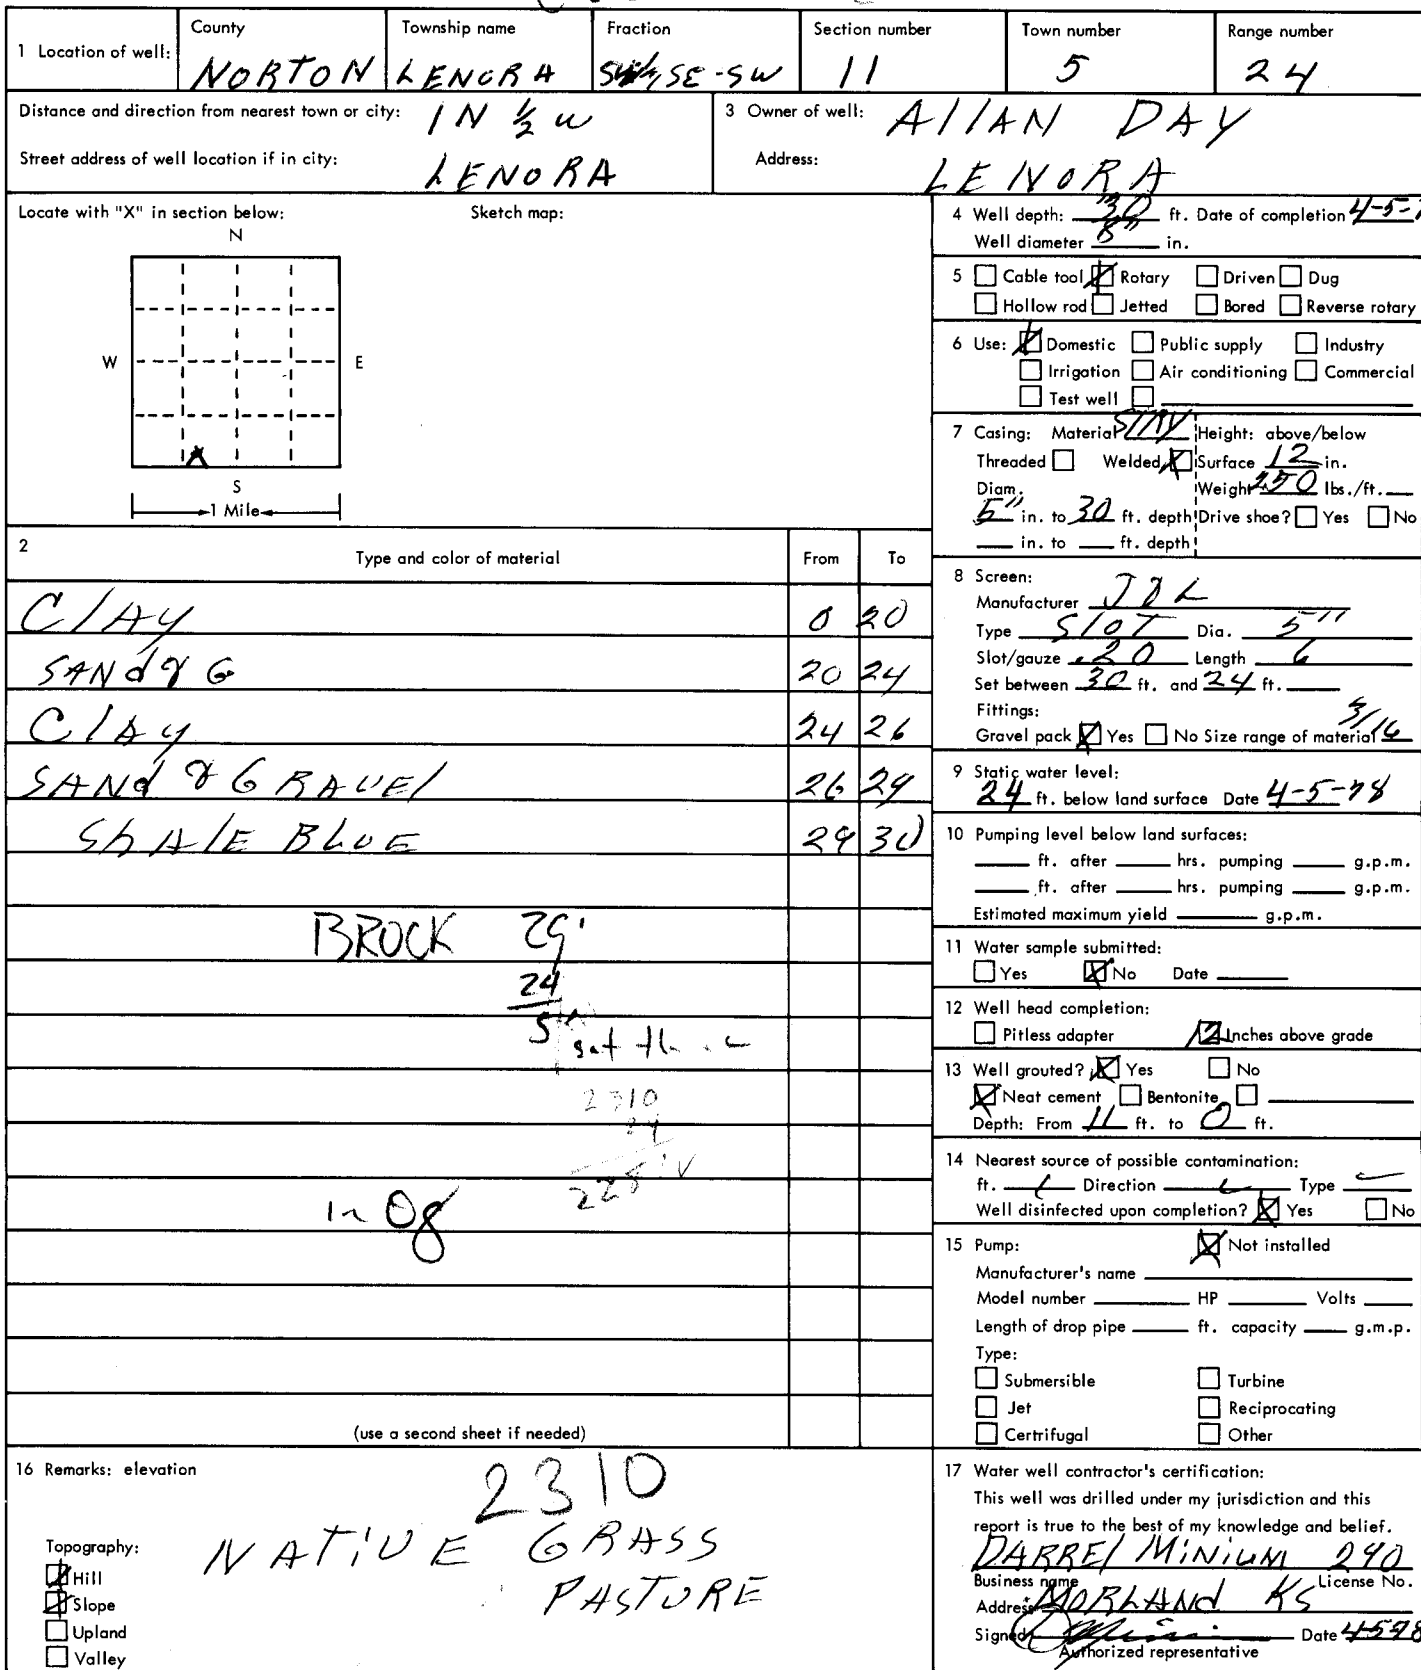 1 Location of well: County Township name Fraction Section number Town number Range number
NORTON LENORA SE-SW 11 5 24
Distance and direction from nearest town or city: 1N ½ W
Street address of well location if in city: LENORA
3 Owner of well: AllAN DAY
Address: LENORA
Locate with "X" in section below: Sketch map:
N
W E
S
1 Mile
2 Type and color of material From To
ClAy 0 20
SANd & G 20 24
ClAy 24 26
SANd & GRAVEl 26 29
ShAlE BLUE 29 30
BROCK 29'
24
5
2310
24
(use a second sheet if needed)
4 Well depth: 30 ft. Date of completion 4-5-7
Well diameter 8" in.
5 Cable tool Rotary Driven Dug
Hollow rod Jetted Bored Reverse rotary
6 Use: Domestic Public supply Industry
Irrigation Air conditioning Commercial
Test well
7 Casing: Material Height: above/below
Threaded Welded Surface 12 in.
Diam. Weight 250 lbs./ft.
5" in. to 30 ft. depth Drive shoe? Yes No
in. to ft. depth
8 Screen:
Manufacturer
Type SlOT Dia. 5"
Slot/gauze .20 Length 6
Set between 30 ft. and 24 ft.
Fittings: 3/16
Gravel pack Yes No Size range of material
9 Static water level:
24 ft. below land surface Date 4-5-78
10 Pumping level below land surfaces:
ft. after hrs. pumping g.p.m.
ft. after hrs. pumping g.p.m.
Estimated maximum yield g.p.m.
11 Water sample submitted:
Yes No Date
12 Well head completion:
Pitless adapter 12 Inches above grade
13 Well grouted? Yes No
Neat cement Bentonite
Depth: From 11 ft. to 0 ft.
14 Nearest source of possible contamination:
ft. Direction Type
Well disinfected upon completion? Yes No
15 Pump: Not installed
Manufacturer's name
Model number HP Volts
Length of drop pipe ft. capacity g.m.p.
Type:
Submersible Turbine
Jet Reciprocating
Certrifugal Other
16 Remarks: elevation 2310
NATiVE GRASS
PASTURE
Topography:
Hill
Slope
Upland
Valley
17 Water well contractor's certification:
This well was drilled under my jurisdiction and this
report is true to the best of my knowledge and belief.
DARREl MiNiUM 240
Business name License No.
Address MORLANd KS
Signed Date 4578
Authorized representative